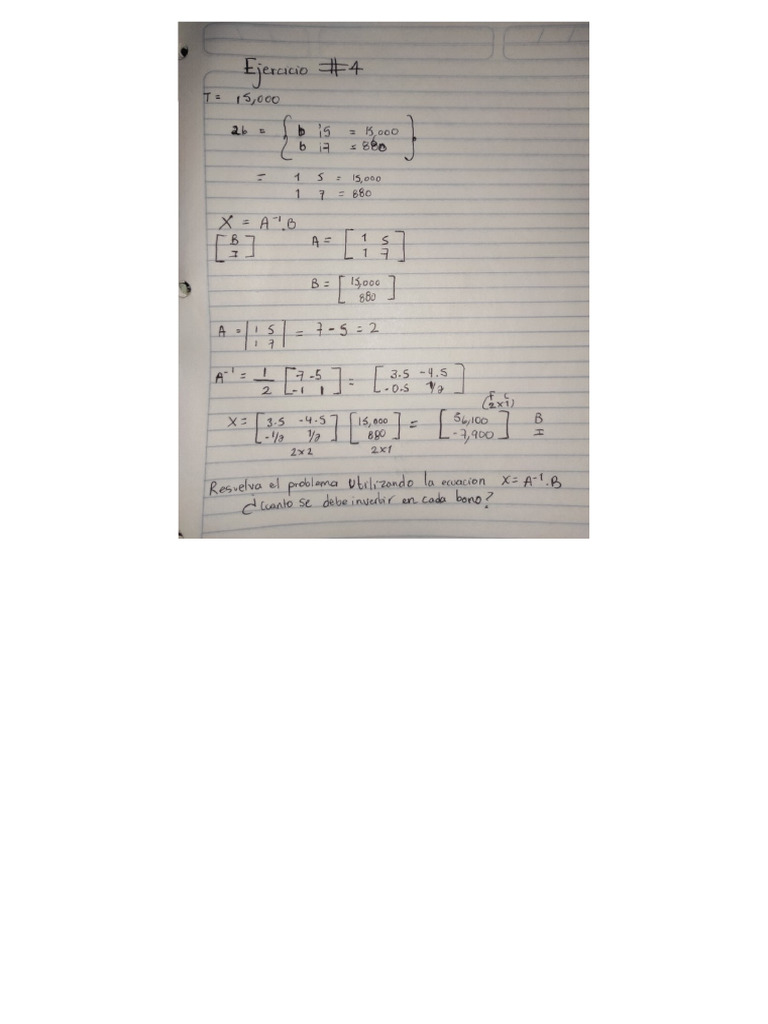 Ejercicio #4
T= 15,000
2b = { b i5 = 15,000
b i7 = 880 }
= 1 5 = 15,000
1 7 = 880
X = A⁻¹.B
[B
I] A = [1 5
1 7]
B = [15,000
880]
A = |1 5
1 7| = 7 - 5 = 2
A⁻¹ = 1/2 [7 -5
-1 1] = [3.5 -4.5
-0.5 1/2]
F C
(2x1)
X = [3.5 -4.5
-1/2 1/2] [15,000
880] = [56,100
-7,900] B
I
2x2 2x1
Resuelva el problema Utilizando la ecuacion X = A⁻¹.B
¿Cuanto se debe invertir en cada bono?